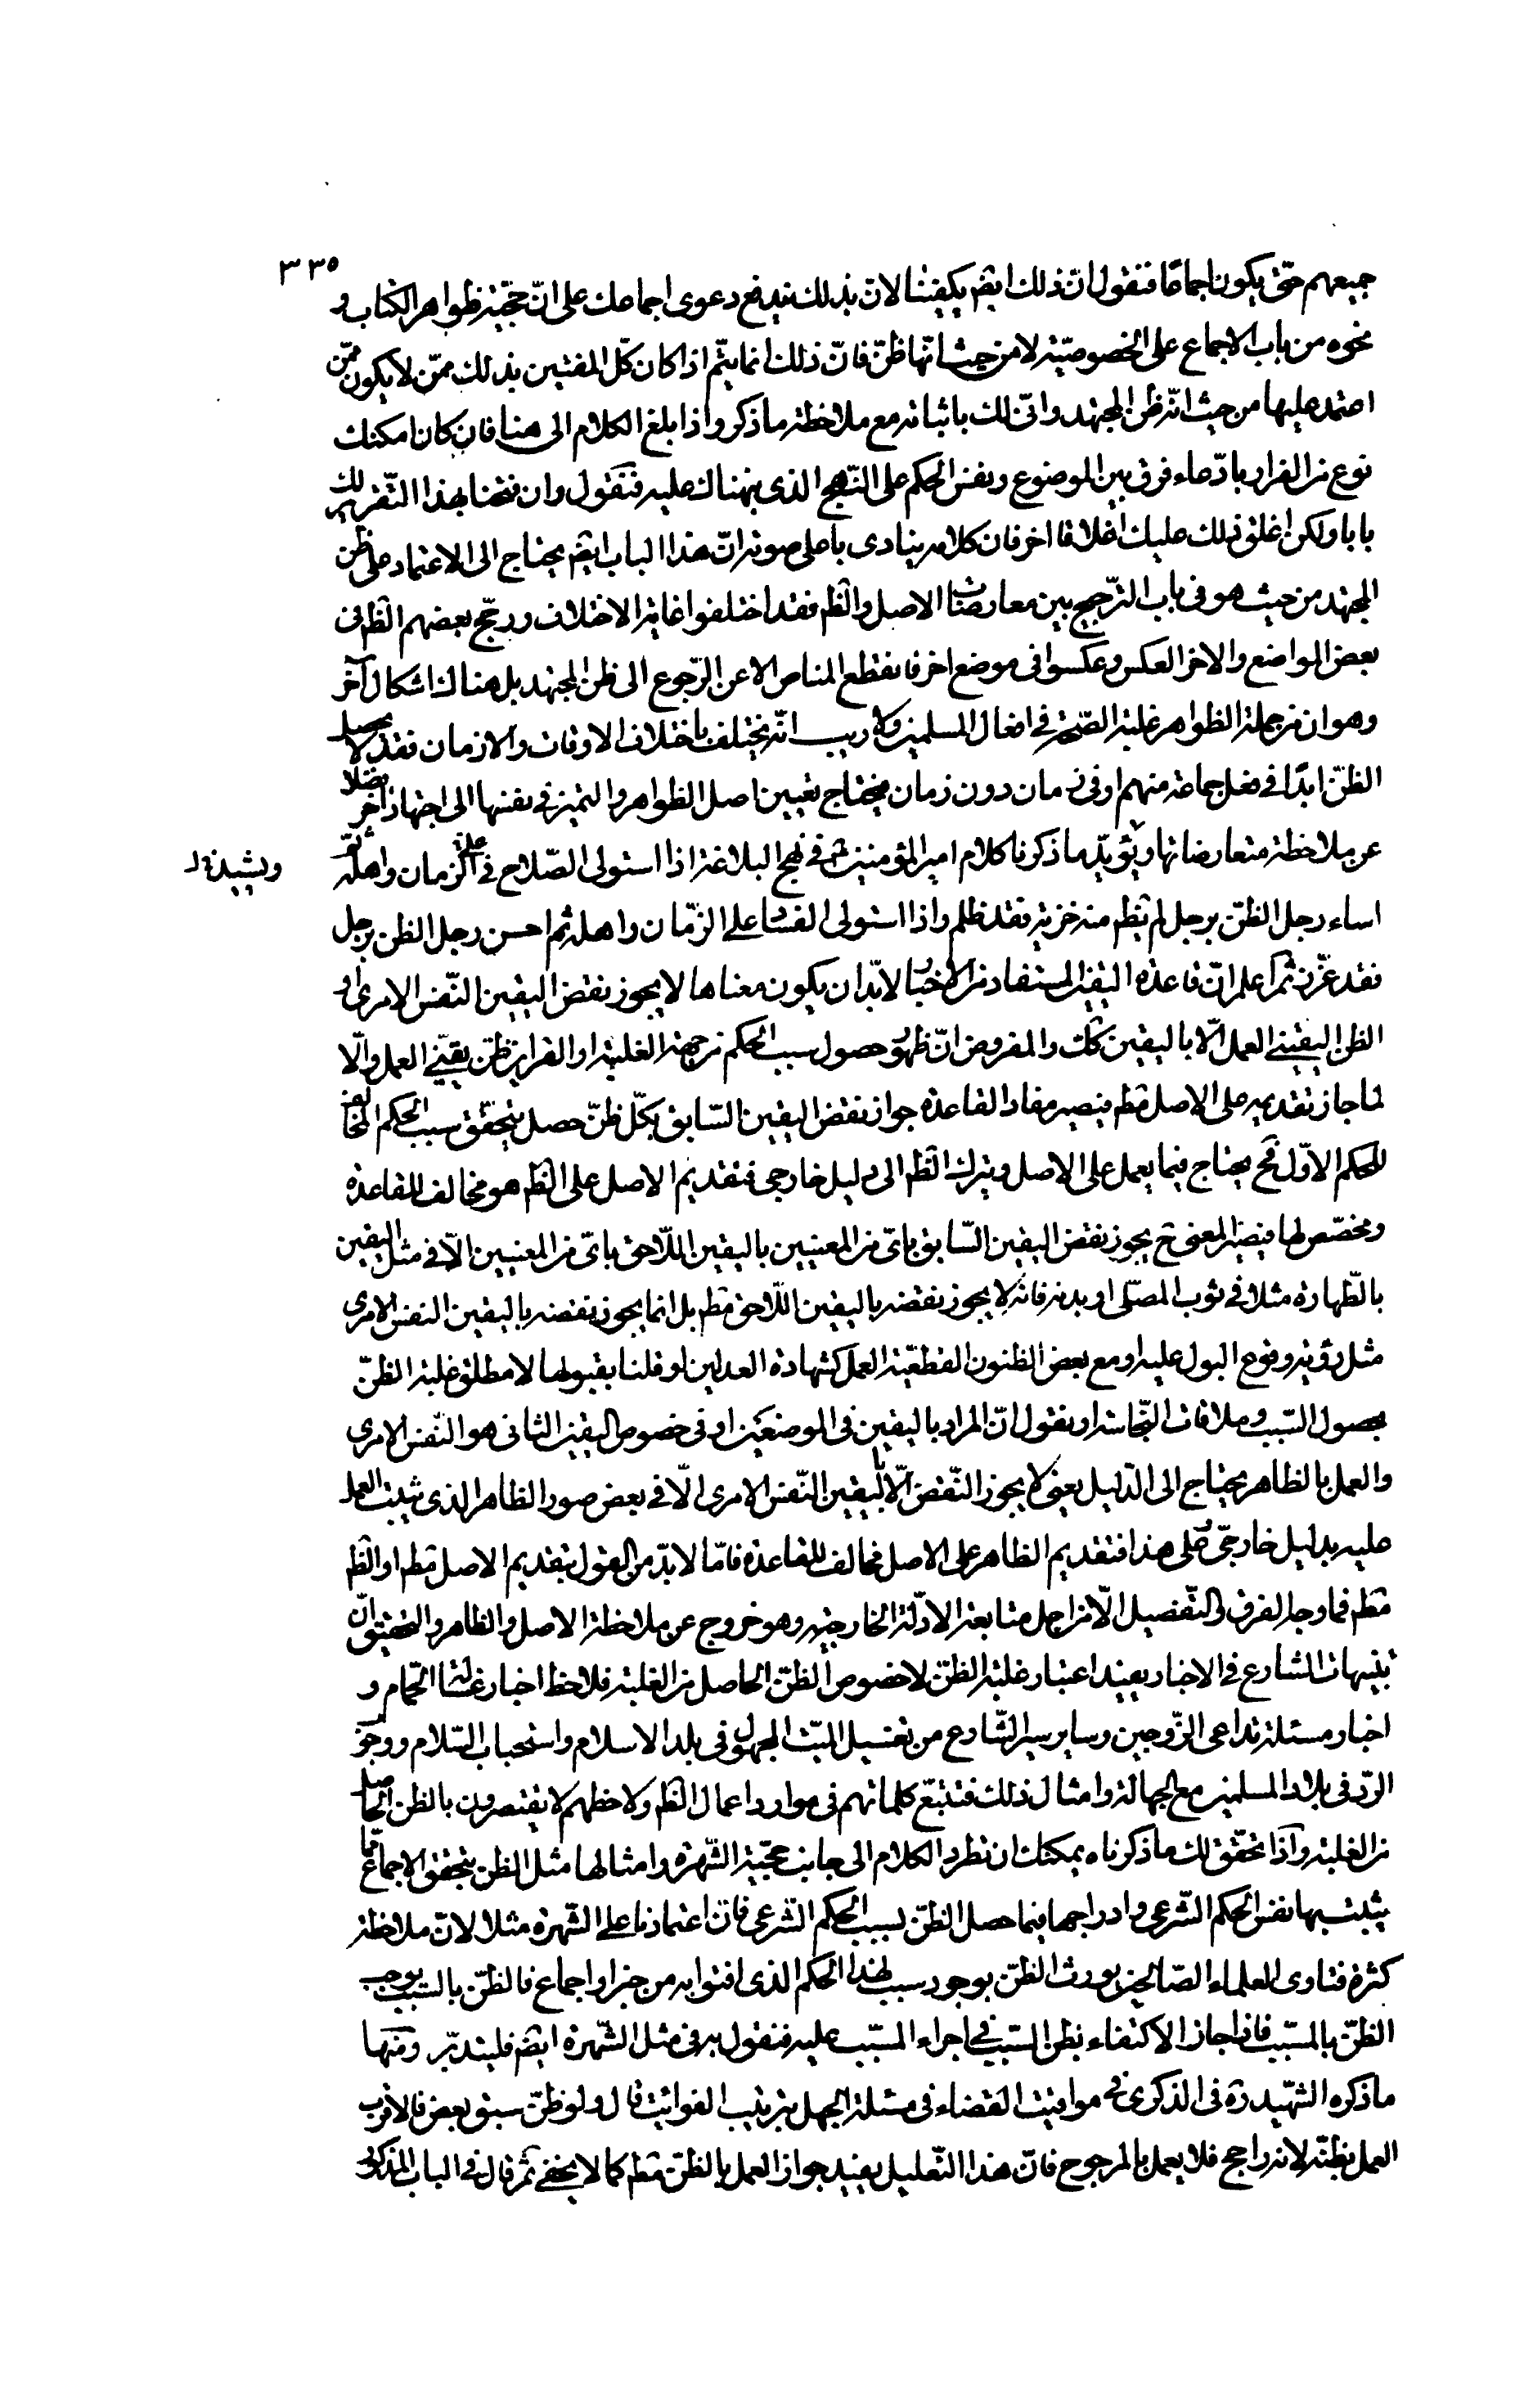 ٣٣٥
جميعهم حتّى يكون اجماعًا فنقول انّ ذلك ايضم يكفينا لانّ بذلك يندفع دعوى اجماعك على انّ حجّيّة ظواهر الكتاب و
نحوه من باب الاجماع على الخصوصيّة لا من حيث انّها ظنّ فانّ ذلك انما يتمّ اذا كان كلّ المفتين بذلك ممّن لا يكون ممّن
اعتمد عليها من حيث انّه ظن المجتهد وانّى لك باثباته مع ملاحظة ما ذكر واذا بلغ الكلام الى هنا فان كان امكنك
نوع من الفرار بادّعاء فرق بين الموضوع ونفس الحكم على النّهج الذى نبهناك عليه فنقول وان فتحنا بهذا التّقرير لك
بابا ولكن اغلق ذلك عليك اغلاقا اخر فان كلامه ينادى باعلى صوته انّ هذا الباب ايضم يحتاج الى الاعتماد على ظن
المجتهد من حيث هو فى باب التّرجيح بين معارضات الاصل والظم فقد اختلفوا غاية الاختلاف ورجّح بعضهم الظم فى
بعض المواضع والاخر العكس وعكسوا فى موضع اخر فانقطع المناص الا عن الرّجوع الى ظن المجتهد بل هناك اشكال آخر
وهو ان من جملة الظواهر غلبة الصّحة فى افعال المسلمين ولا ريب انّه يختلف باختلاف الاوقات والازمان فقد لا يحصل
الظنّ ابدًا فى فعل جماعة منهم او فى زمان دون زمان فيحتاج تعيين اصل الظواهر والتميز فى نفسها الى اجتهاد اخر فضلا
عن ملاحظة متعارضاتها ويؤيّد ما ذكرنا كلام امير المؤمنين ع فى نهج البلاغة اذا استولى الصّلاح على الزمان واهله ثم
اساء رجل الظنّ برجل لم يظم منه خزية فقد ظلم واذا استولى الفساد على الزّمان واهله ثم احسن رجل الظن برجل
فقد غرّر ثم اعلم انّ قاعدة اليقين المستفاد من الاخبار لا بدّ ان يكون معناها لا يجوز نقض اليقين النّفس الامرى او
الظن اليقينى العمل الّا باليقين كك والمفروض انّ ظهور حصول سبب الحكم من جهة الغلبة او القراين ظنّ يقينى العمل والّا
لما جاز تقديمه على الاصل مطم فيصير مفاد القاعدة جواز نقض اليقين السّابق بكلّ ظنّ حصل بتحقّق سبب الحكم المخالف
للحكم الاوّل فح يحتاج فيما يعمل على الاصل ويترك الظم الى دليل خارجى فتقديم الاصل على الظم هو مخالف للقاعدة
ومخصّص لها فيصير المعنى ح يجوز نقض اليقين السّابق باىّ من المعنيين باليقين اللّاحق باىّ من المعنيين الّا فى مثل اليقين
بالطّهارة مثلا فى ثوب المصلّى او بدنه فانه لا يجوز نقضه باليقين اللّاحق مطم بل انما يجوز نقضه باليقين النفس الامرى
مثل رؤية وقوع البول عليه او مع بعض الظنون القطعيّة العمل كشهادة العدلين لو قلنا بقبولها لا مطلق غلبة الظنّ
بحصول السّبب وملاقات النّجاسة او نقول انّ المراد باليقين فى الموضعين او فى خصوص اليقين الثانى هو النّفس الامرى
والعمل بالظاهر يحتاج الى الدّليل يعنى لا يجوز النّقض الّا باليقين النّفس الامرى الّا فى بعض صور الظاهر الذى يثبت العمل
عليه بدليل خارجىّ فعلى هذا فتقديم الظاهر على الاصل مخالف للقاعدة فامّا لا بدّ من القول بتقديم الاصل مطم او الظم
مطم فما وجه الفرق والتّفصيل الّا من اجل متابعة الادلّة الخارجيّة وهو خروج عن ملاحظة الاصل والظاهر والتحقيق انّ
تنبيهات الشارع فى الاخبار يفيد اعتبار غلبة الظنّ لا خصوص الظنّ الحاصل من الغلبة فلاحظ اخبار غسالة الحمّام و
اخبار مسئلة تداعى الزّوجين وساير سير الشّارع من تغسيل الميّت المجهول فى بلد الاسلام واستحباب السّلام ووجوب
الردّ فى بلاد المسلمين مع الجهالة وامثال ذلك فتتبّع كلماتهم فى موارد اعمال الظم ولاحظهم لا يقتصرون بالظن الحاصل
من الغلبة وآذا تحقّق لك ما ذكرناه يمكنك ان تطرد الكلام الى جانب حجّيّة الشّهرة وامثالها مثل الظن بتحقق الاجماع ممّا
يثبت بها نفس الحكم الشّرعى وادراجها فيما حصل الظنّ بسبب الحكم الشّرعى فانّ اعتمادنا على الشّهرة مثلا لانّ ملاحظة
كثرة فتاوى العلماء الصّالحين يورث الظنّ بوجود سبب لهذا الحكم الذى افتوا به من خبر او اجماع فالظنّ بالسّبب يوجب
الظنّ بالمسبّب فاذا جاز الاكتفاء بظن السّبب فى اجراء المسبّب عليه فنقول به فى مثل الشّهرة ايضم فليتدبّر ومنها
ما ذكره الشّهيد ره فى الذكرى فى مواقيت القضاء فى مسئلة الجهل بترتيب الفوائت قال ولو ظنّ سبق بعض فالاقرب
العمل بظنّه لانه راجح فلا يعمل بالمرجوح فانّ هذا التّعليل يفيد جواز العمل بالظنّ مطم كما لا يخفى ثم قال فى الباب المذكور